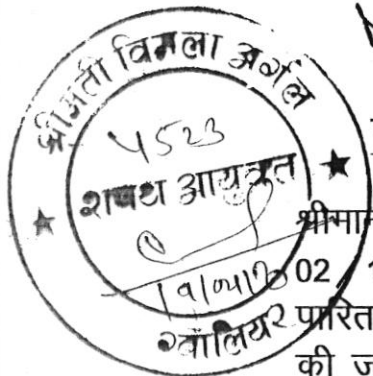 श्रीमती विमला अर्गल
4523
शपथ आयुक्त
ग्वालियर
श्रीमान
02
पारित
की ज